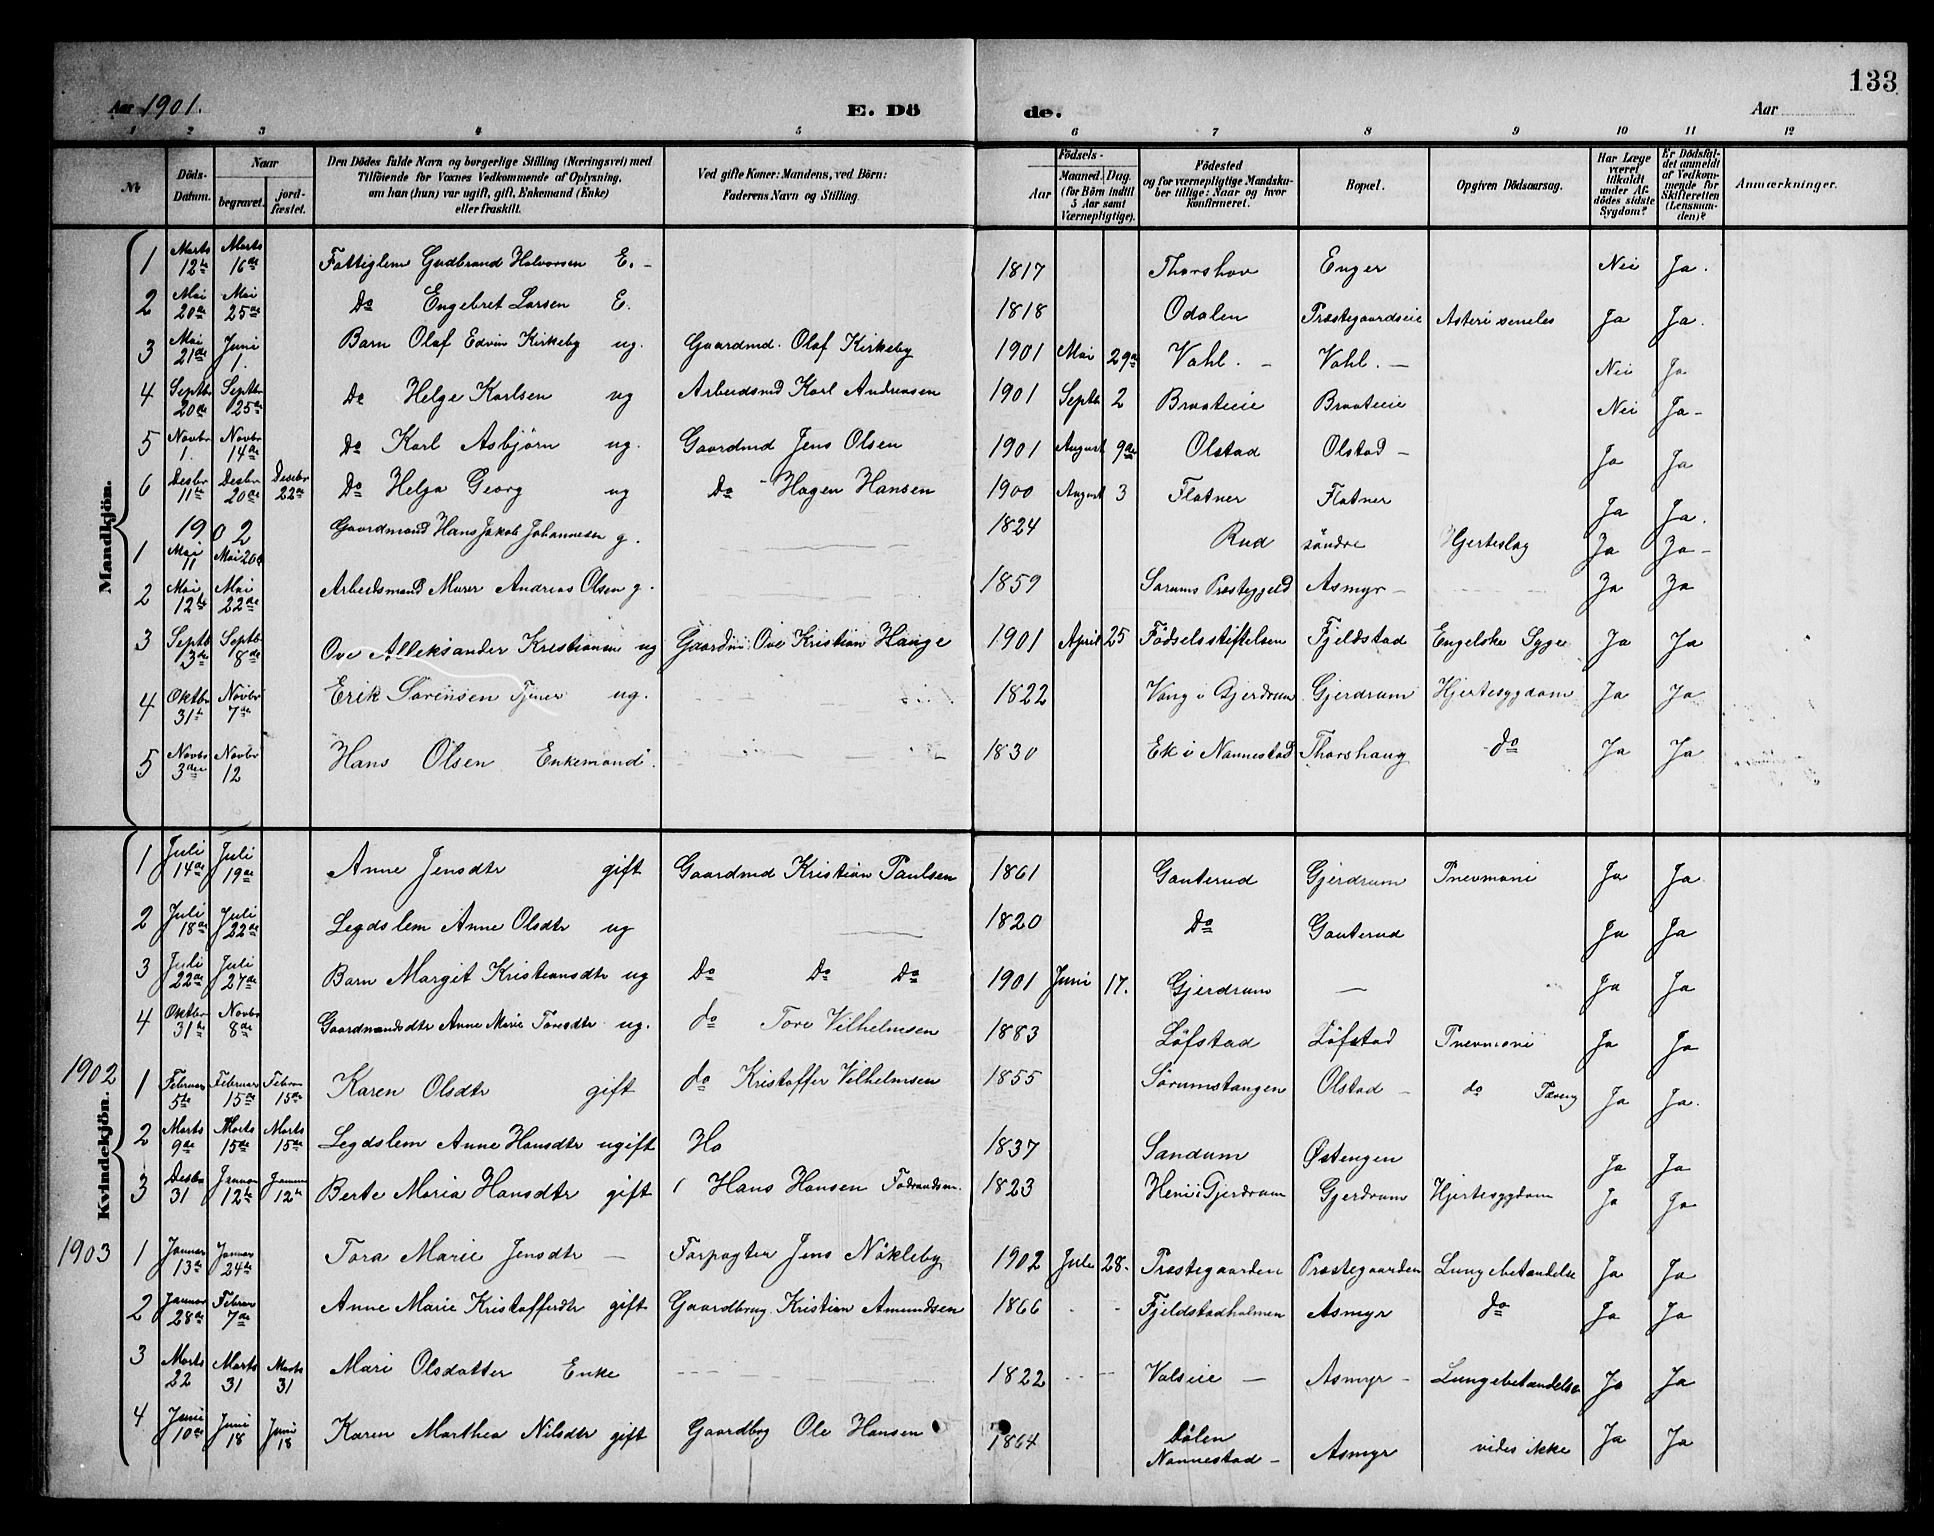 133
Aar 1901. E. Dö de. Aar
1 2 3 4 5 6 7 8 9 10 11 12
№ Döds-Datum. Naar begravet. jord-fæstet. Den Dödes fulde Navn og borgerlige Stilling (Næringsvei) med Tilföiende for Voxnes Vedkommende af Oplysning, om han (hun) var ugift, gift, Enkemand (Enke) eller fraskilt. Ved gifte Koner: Mandens, ved Börn: Faderens Navn og Stilling. Födsels- Aar Maaned. Dag. (for Börn indtil 5 Aar samt Værnepligtige). Födested og for værnepligtige Mandskaber tillige: Naar og hvor konfirmeret. Bopæl. Opgiven Dödsaarsag. Har Læge været tilkaldt under Afdödes sidste Sygdom? Er Dödsfaldet anmeldt af Vedkommende for Skifteretten (Lensmanden)? Anmærkninger.
Mandkjön.
1 Marts 12te Marts 16de Fattiglem Gudbrand Halvorsen E. - 1817 Thorshov Enger Nei Ja.
2 Mai 20de Mai 25de Do Engebret Larsen E. 1818 Odalen Præstegaardseie Ja Ja.
3 Mai 21de Juni 1. Barn Olaf Edvin Kirkeby ug. Gaardmd. Olaf Kirkeby 1901 Mai 29de Vahl. - Vahl. - Nei Ja
4 Septbr 20de Septbr 25de Do Helge Karlsen ug Arbeidsmd Karl Andreasen 1901 Septb. 2 Braateeie Braateeie Nei Ja -
5 Novbr 1. Novbr 14de Do Karl Asbjørn ug. Gaardmd Jens Olsen 1901 August 9de Olstad Olstad - Ja Ja
6 Desbr 11te Desbr 20de Desebr 22de Do Helge Georg ug Do Hagen Hansen 1900 August 3 Flatner Flatner Ja Ja.
1902
1 Mai 11 Mai 20de Gaardmand Hans Jakob Johannesen g. 1824 Rud søndre Hjerteslag Ja Ja -
2 Mai 12te Mai 22de Arbeidsmand Murer Andreas Olsen g. 1859 Sørums Præstegjeld Asmyr - Ja Ja
3 Septb 3de Septbr 8de Ove Alleksander Kristiansen ug Gaardm: Ove Kristian Hauge 1901 April 25 Fødselsstiftelsen Fjeldstad Engelske Syge Ja Ja
4 Oktbr 31te Novbr 7de Erik Sørensen Tjener ug. 1822 Vang i Gjerdrum Gjerdrum Hjertesygdom Ja Ja
5 Novbr 3die Novbr 12 Hans Olsen Enkemand. 1830 Ek i Nannestad Thorshaug do Ja Ja
Kvindekjön.
1 Juli 14de Juli 19de Anne Jensdtr gift Gaardmd Kristian Paulsen 1861 Gauterud Gjerdrum Pnevmoni Ja Ja.
2 Juli 18de Juli 22de Legdslem Anne Olsdtr ug 1820 Do Gauterud Ja Ja
3 Juli 22de Juli 27de Barn Margit Kristiansdtr ug Do Do Do 1901 Juni 17. Gjerdrum - Ja Ja
4 Oktbr 31te Novbr 8de Gaardmandsdtr Anne Marie Toresdtr ug. do Tore Vilhelmsen 1883 Løfstad Løfstad Pnevmoni Ja Ja
1902 1 Februar 5te Februar 15de Febru 15de Karen Olsdtr gift do Kristoffer Vilhelmsen 1855 Sørumstangen Olstad - do Tæring Ja Ja.
2 Marts 9de Marts 15de Marts 15de Legdslem Anne Hansdtr ugift 1837 Sandum Østengen Ja Ja
3 Desbr 31 Januar 12te Januar 12te Berte Maria Hansdtr gift Hans Hansen Føderaadsm. 1823 Heni i Gjerdrum Gjerdrum Hjertesygdom Ja Ja
1903 1 Januar 13de Januar 24de Tora Marie Jensdtr - Forpagter Jens Nökleby 1902 Juli 28. Præstegaarden Præstegaarden Lungebetændelse Ja Ja
2 Januar 28de Februar 7de Anne Marie Kristoffersdtr gift Gaardbrug. Kristian Amundsen 1866 Fjeldstadholmen Asmyr do Ja Ja
3 Marts 22 Marts 31 Marts 31 Mari Olsdatter Enke 1822 Valseie - Asmyr - Lungebetændelse Ja Ja
4 Juni 10de Juni 18 Juni 18 Karen Marthea Nilsdtr gift Gaardbrg Ole Hansen 1864 Dølen Nannestad - Asmyr vides ikke Ja Ja